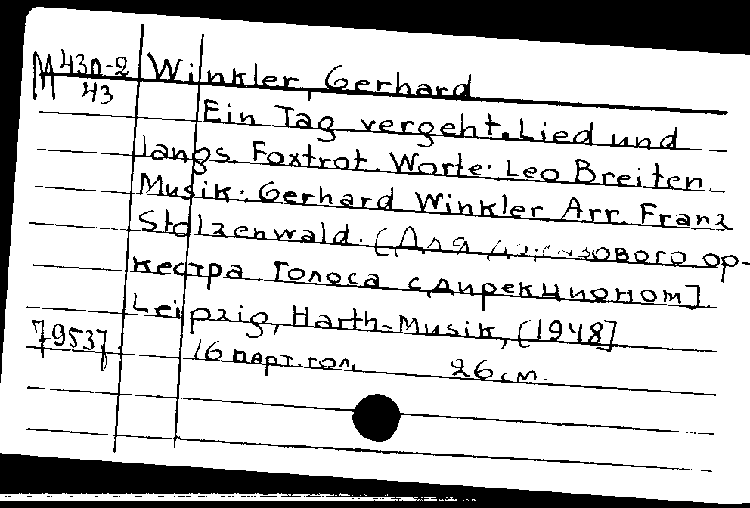 М 43п-2 Winkler, Gerhard
43
Ein Tag vergeht. Lied und
langs. Foxtrot. Worte: Leo Breiten
Musik: Gerhard Winkler Arr. Franz
Stolzenwald. [Для джазового ор-
кестра Голоса с дирекционом]
Leipzig, Harth-Musik, [1948]
79537 16 парт. гол. 26 см.